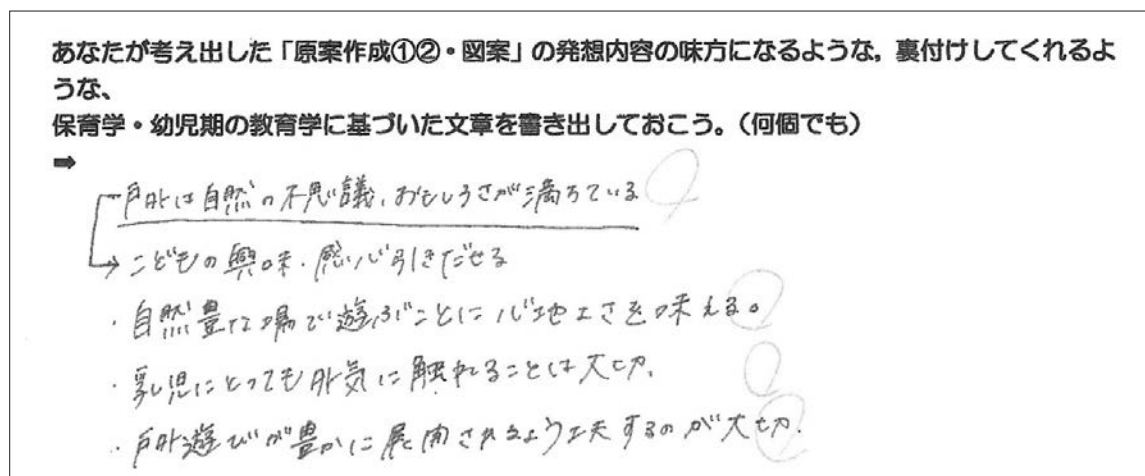 あなたが考え出した「原案作成①②・図案」の発想内容の味方になるような，裏付けしてくれるよ
うな、
保育学・幼児期の教育学に基づいた文章を書き出しておこう。（何個でも）
➡
戸外は自然の不思議、おもしろさが満ちている
→こどもの興味・感心引きだせる
・自然豊な場で遊ぶことに心地よさを味える。
・乳児にとっても外気に触れることは大切。
・戸外遊びが豊かに展開されるよう工夫するのが大切.